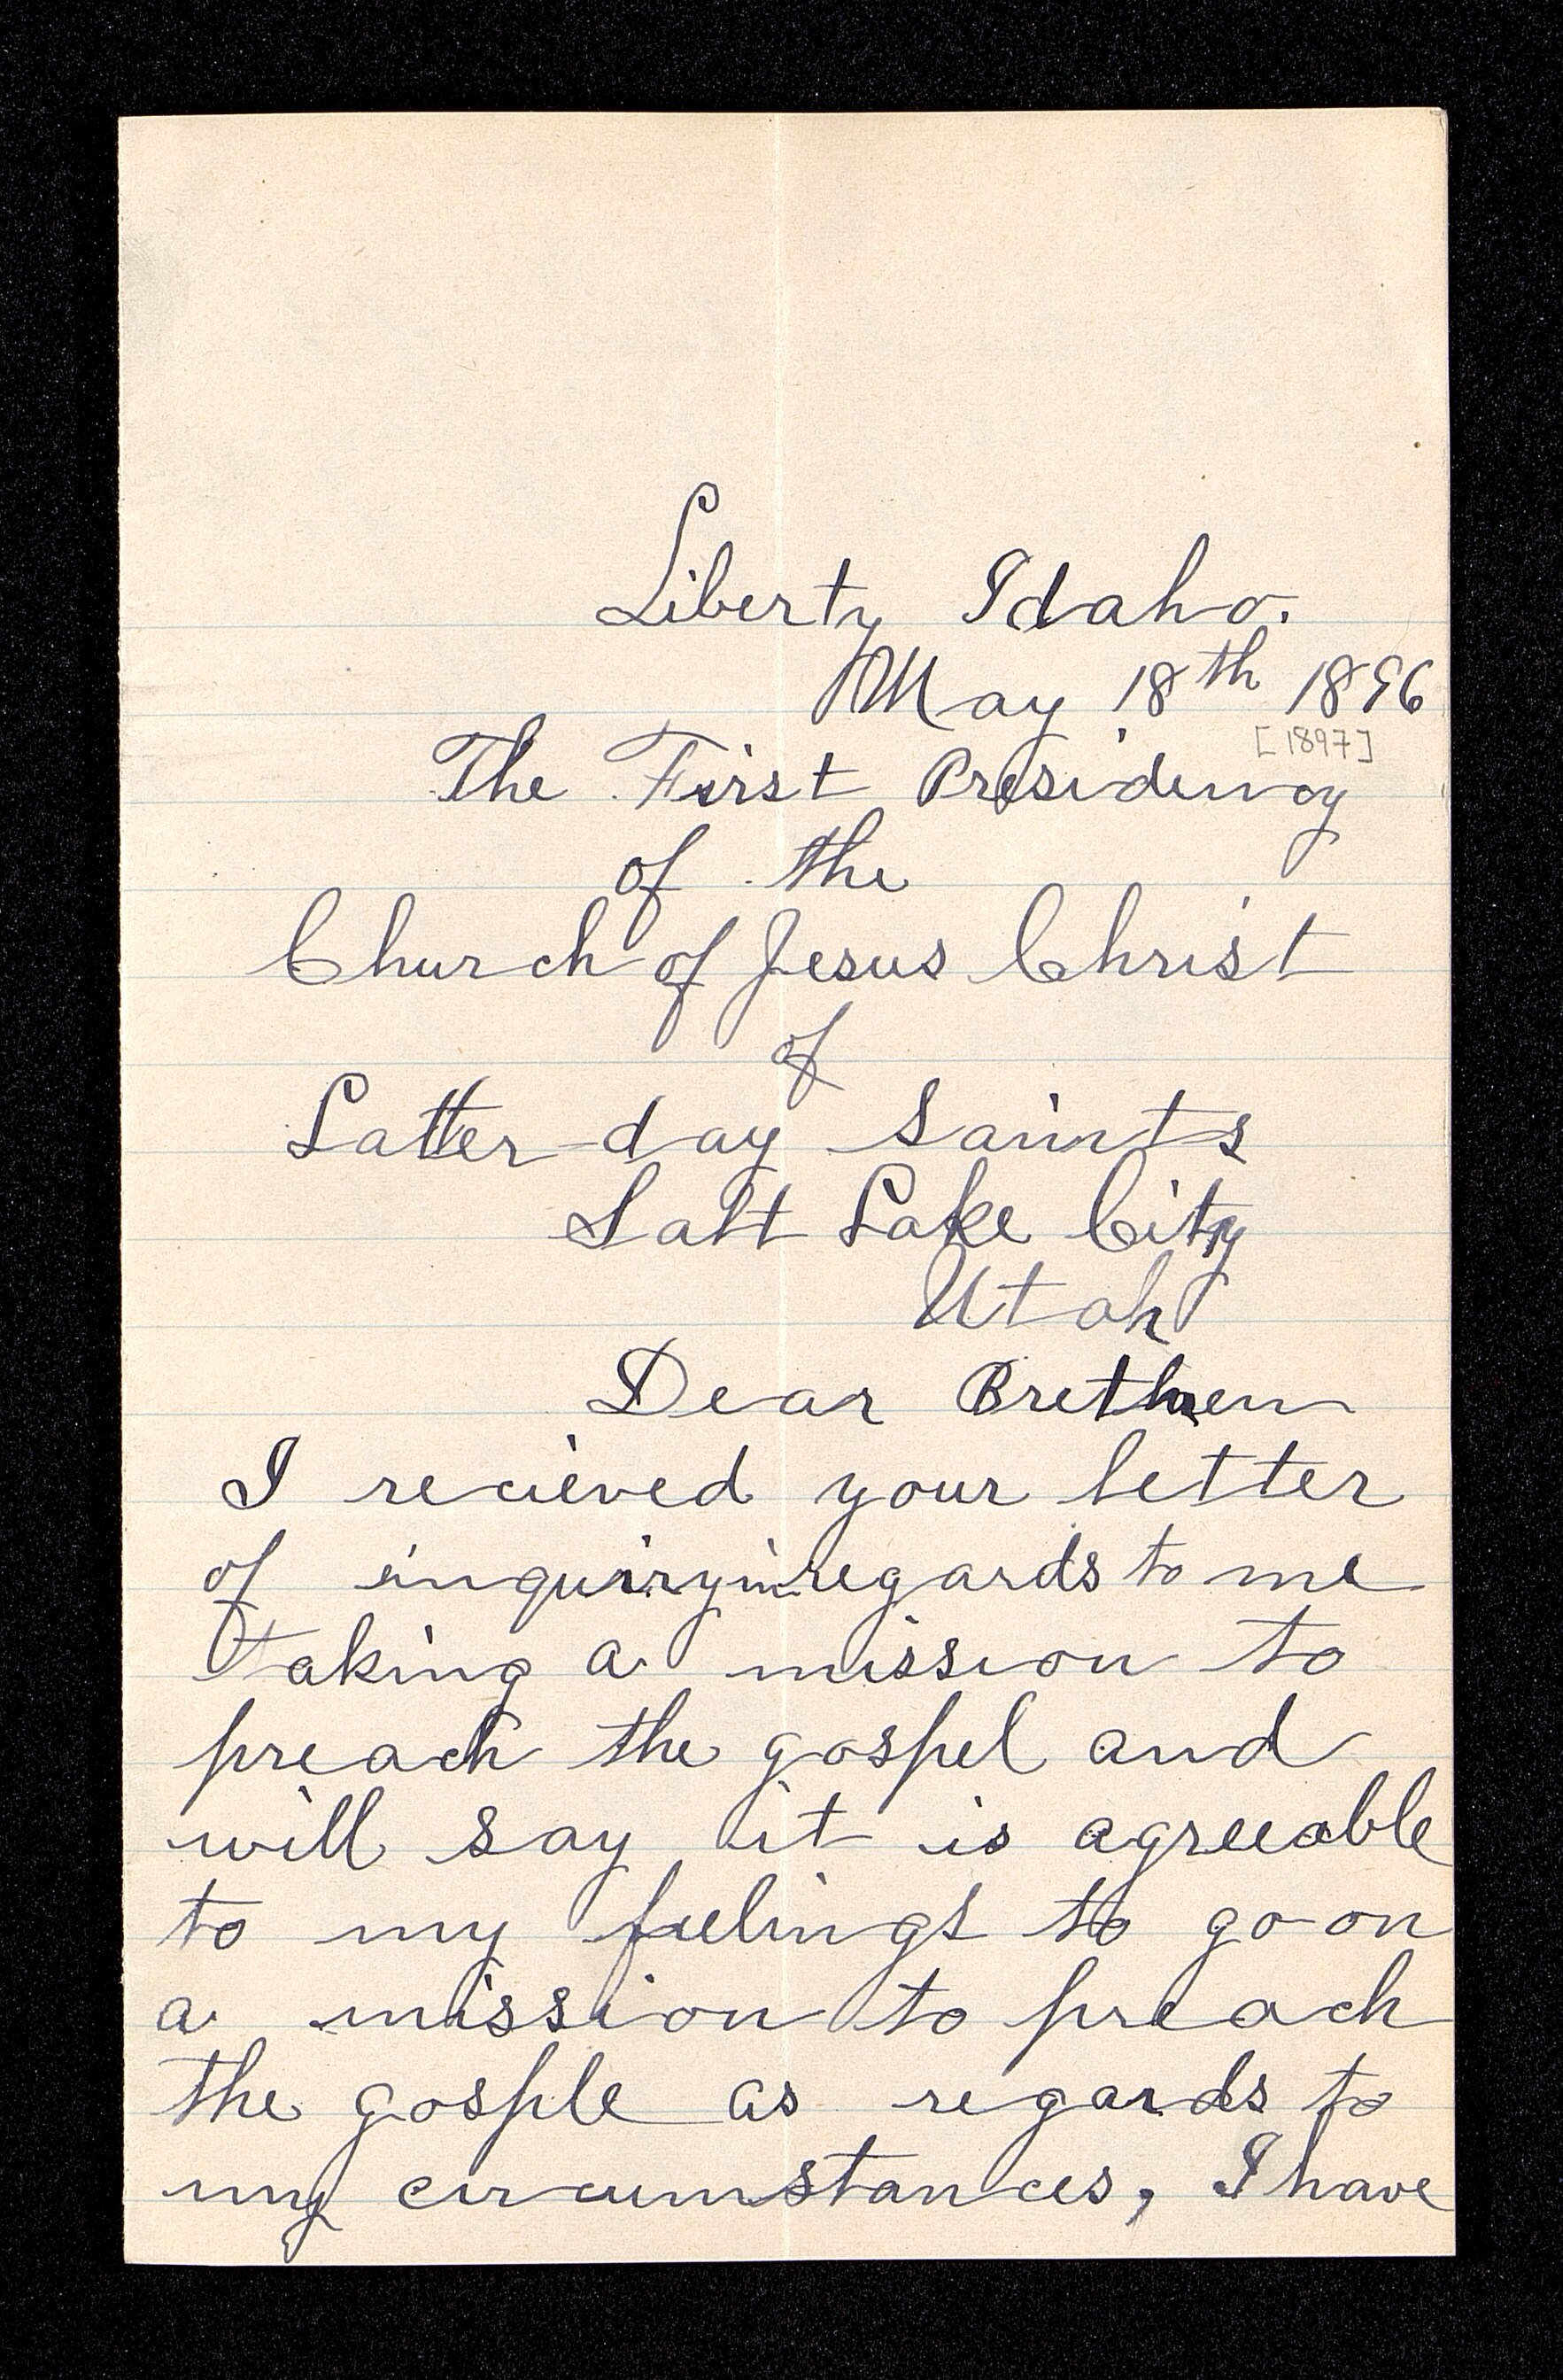 Liberty Idaho.
May 18th 1896
[1897]
The First Presidency
of the
Church of Jesus Christ
of
Latter day Saints
Salt Lake City
Utah
Dear Brethren
I recieved your letter
of inquiry in regards to me
taking a mission to
preach the gospel and
will say it is agreeable
to my feelings to go on
a mission to preach
the gosple as regards to
my circumstances, I have